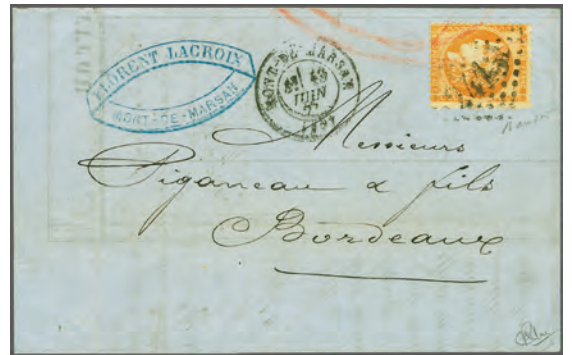 FLORENT LACROIX
MONT-DE-MARSAN
MONT-DE-MARSAN
JUIN
Messieurs
Piganeau & fils
Bordeaux